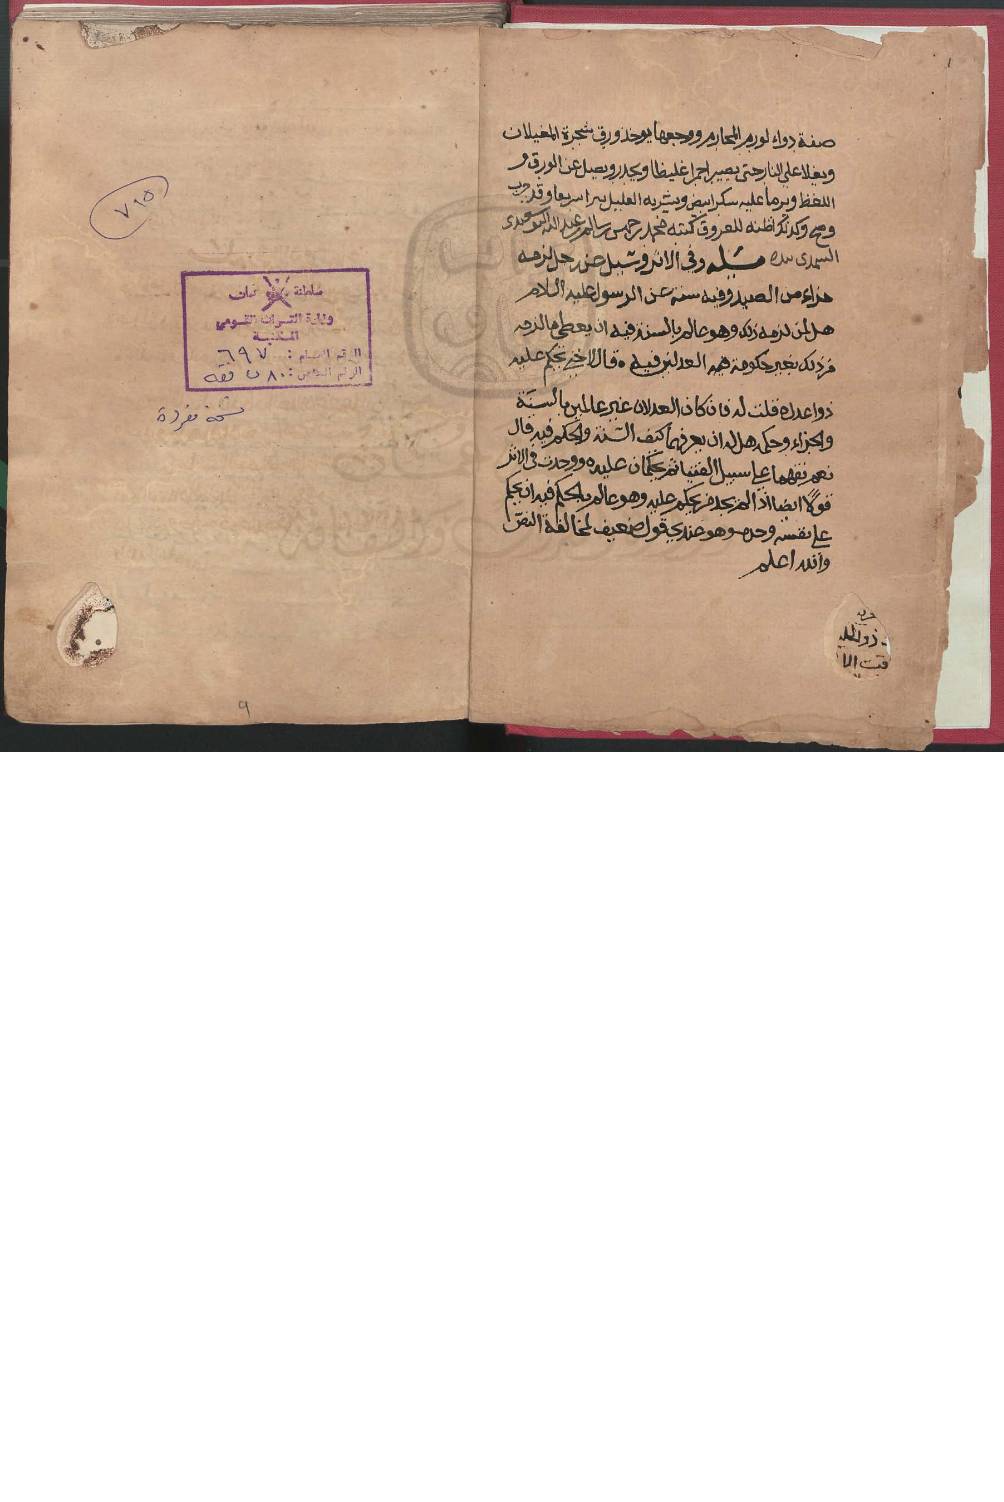 صفة دواء لورم المحارم ووجعها يوخذ ورق شجرة المغيلان
ويغلا على النار حتى يصير احمرا غليظا ويحدر ويصل عن الورق و
اللفظ ويرما عليه سكر ابيض ويشربه العليل يبرا سريعا وقد جرب
وصح وكذلك اظنه للعروق كتبه محمد بن خميس بن سالم بن عبدالله البوسعيدي
السمدي بيده مسئلة وفي الاثر وسئيل عن رجل لزمه
جزاء من الصيد وفيه سنة عن الرسول عليه السلام
هل لمن لزمه ذلك وهو عالم بالسنة فيه ان يعطي ما لزمه
من ذلك بغير حكومة فيه العدلين فيه ه قال لا حتى يحكم عليه
ذوا عدل ه قلت له فان كان العدلان غير عالمين بالسنة
والجزاء وحكمه هل له ان يعرفهما كيف السنة والحكم فيه قال
نعم يفهمها على سبيل الفتيا ثم يحكمان عليه ه ووجدت في الاثر
قولا ايضا اذا لم يجد من يحكم عليه وهو عالم بالحكم فيه ان يحكم
على نفسه وحده وهو عندي قول ضعيف لمخالفة النص
والله اعلم
٧٦٥
سلطنة عمان
وزارة التراث القومي
المكتبة
الرقم العام : ٦٩٧
الرقم الخاص : ٨٠ ن فقه
نسخة مفردة
٩